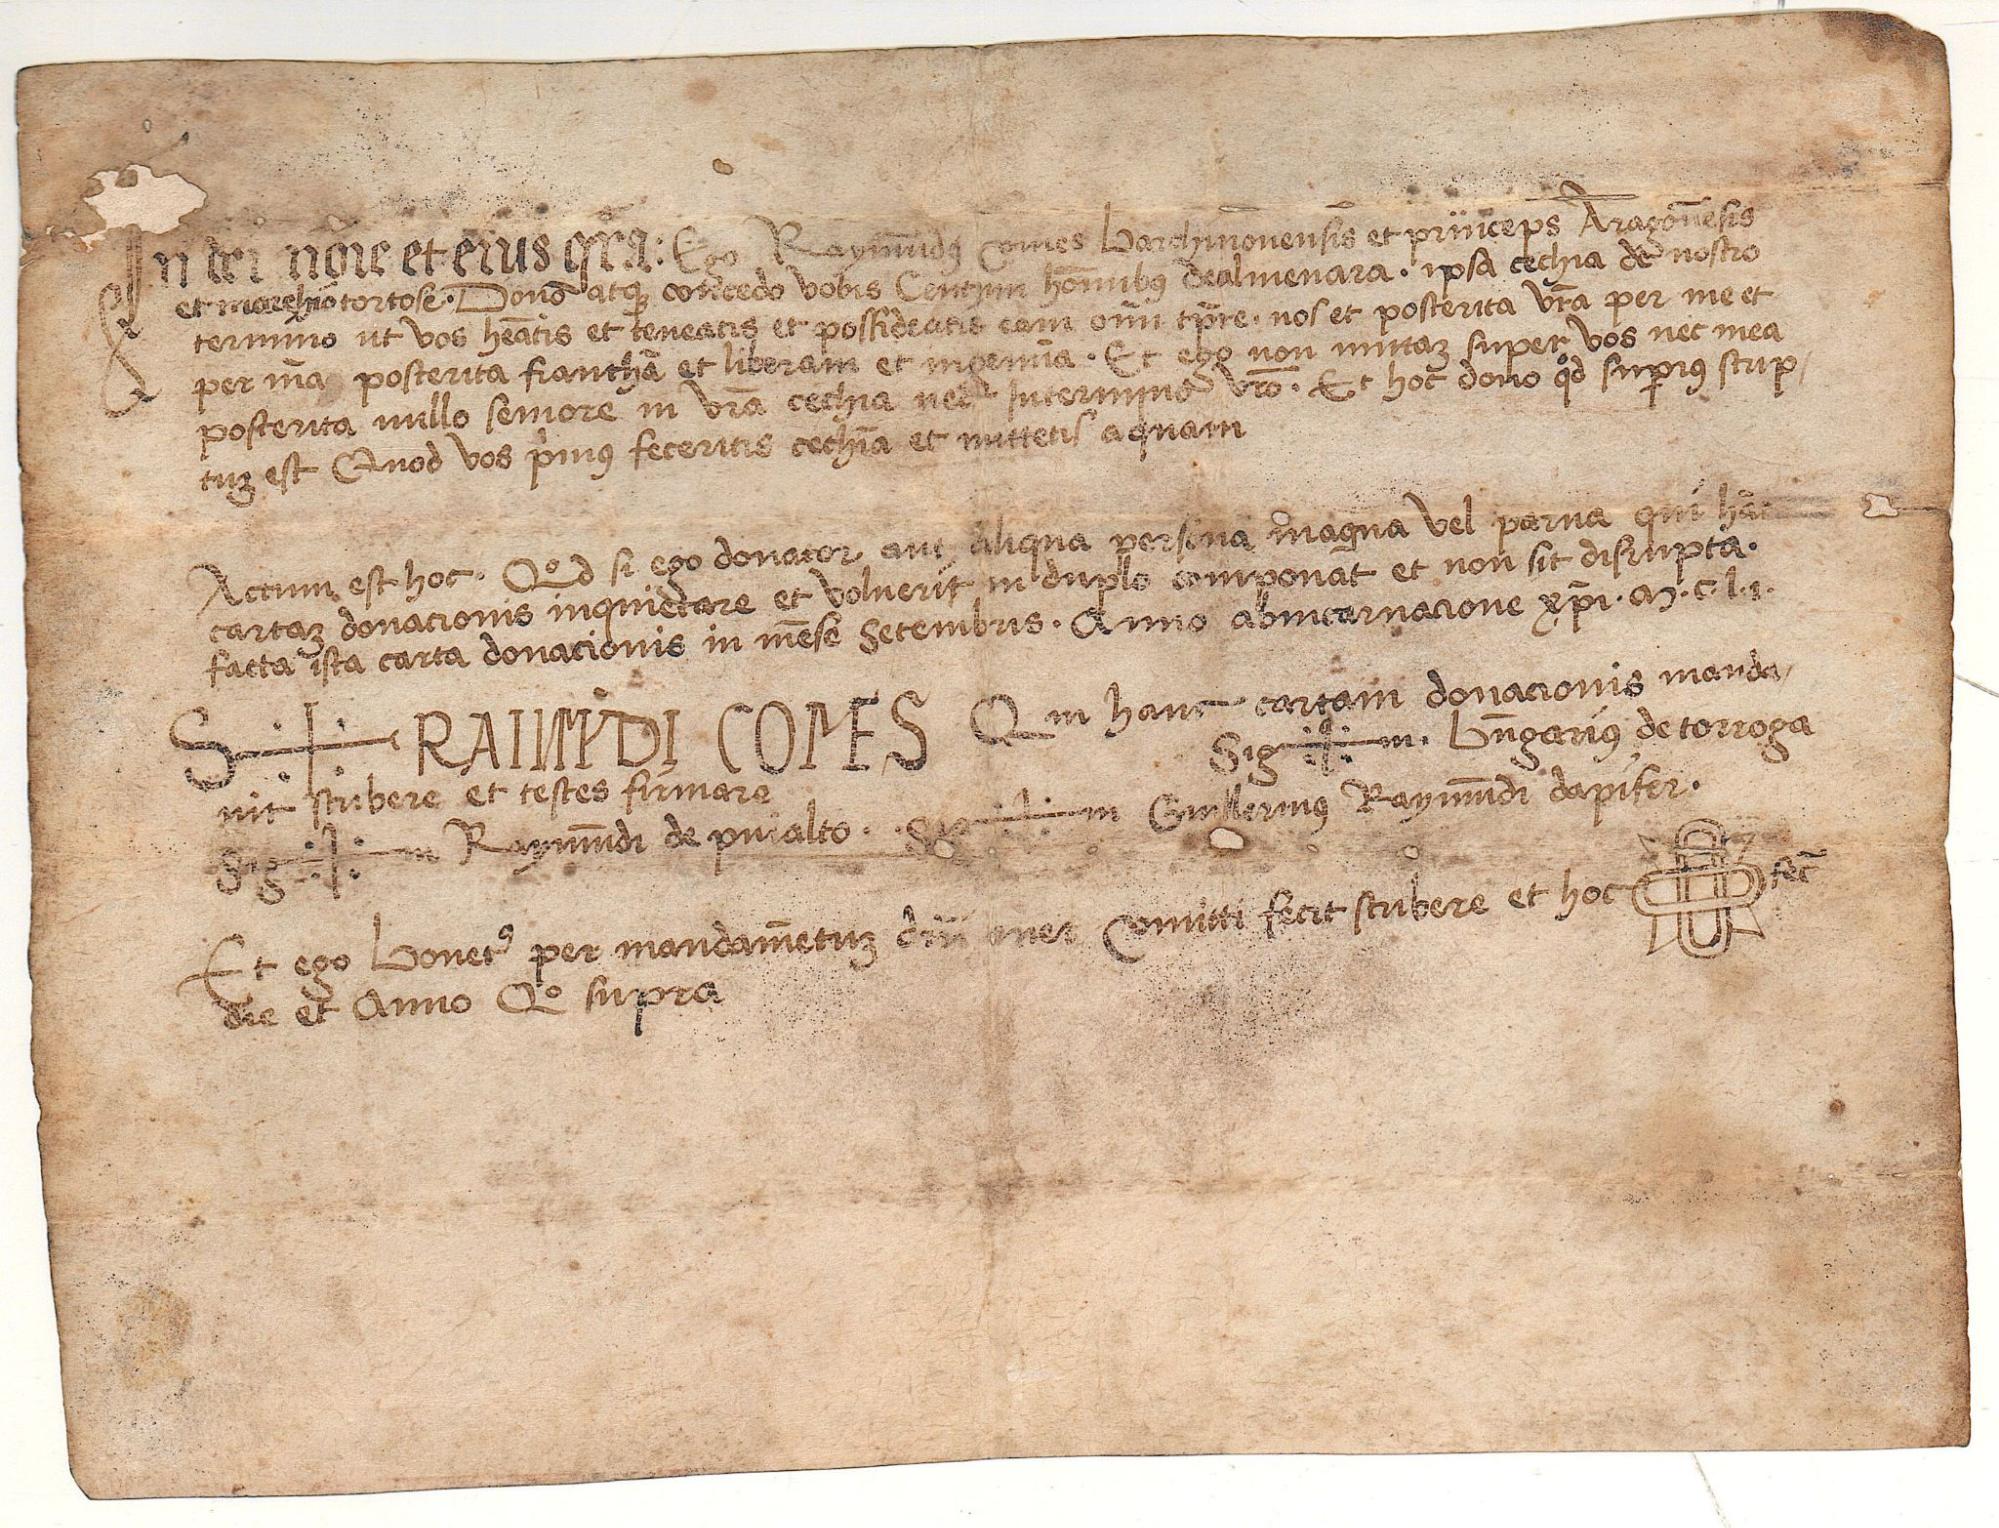 In dei noīe et eius gr̄a: Ego Raymūdꝰ comes barchinonensis et princeps Aragonēsis
et marchio tortose. Dono atqꝫ concedo vobis Centum hoīnibꝰ de almenara. ipsa cechia de nostro
termino ut vos heātis et teneatis et possideatis eam om̄i tp̄re. nos et posterita vr̄a per me et
per m̄a posterita franchā et liberam et ingenuā. Et ego non mittaꝫ super vos nec mea
posterita nullo seniore in vr̄a cechia nec in termino vr̄o. Et hoc dono qͦd superiꝰ scrip/
tuꝫ est Quod vos p̄miꝰ feceritis cechīa et mittetis aquam
Actum est hoc. Qͦd si ego donator aut aliqua persona magna vel parua qui hāc
cartaꝫ donacionis inquietare et voluerit in duplo componat et non sit disrupta.
facta ista carta donacionis in mēse Setembris. Anno ab incarnacione xp̄i. M. C. L. I.
S + RAIMŪDI COMES Qui hanc cartam donacionis manda/
uit scribere et testes firmare Sig+m. bn̄garius de torroga
Sig+m Raymūdi de puialto. Sig+m Guillermꝰ Raymūdi dapifer.
Et ego bonetꝰ per mandamētuꝫ dn̄i mei Comitti fecit scribere et hoc fec̄
die et Anno Qͦ supra